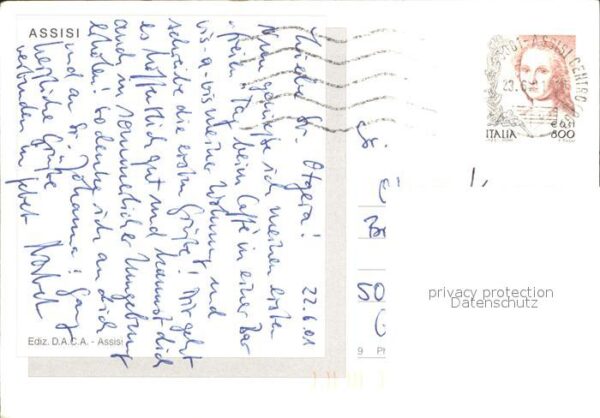 ASSISI
22.6.01
Liebe Sr. Otgera!
genieße ich meinen ersten
"freien" Tag beim Caffè in einer Bar
vis-a-vis meiner Wohnung und
schreibe die ersten Grüße! Mir geht
es hoffentlich gut und kannst dich
auch in sommerlicher Umgebung
erholen! So denke ich an dich
und an Sr. Johanna! Ganz
herzliche Grüße
verbunden im Gebet
Ediz. D.A.C.A. - Assisi
ASSISI CENTRO
23.6
ITALIA
€ 0,41
800
privacy protection
Datenschutz